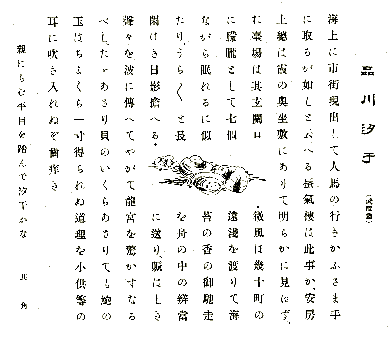 品川汐干
海上に市街現出して人馬の行きかふさま手
に取るが如しと云へる蜃氣樓は此事か、安房
上總は霞の奥座敷にありて明らかに見えず、
に臺場は其玄關口
に朦朧として七個
ながら眠れるに似
たり、うら〱と長
閑けき日影擔へる
微風は幾十町の
遠淺を渡りて海
苔の香の御馳走
を舟の中の辨當
に送り、賑はしき
聲々を波に傳へてやがて龍宮を驚かすなる
べし、たゞあさり貝のいくらあさりても鮑の
玉はちよくら一寸得られぬ道理を小供等の
耳に吹き入れぬぞ痒き
親にらむ平目を踏んで汐干かな 其角